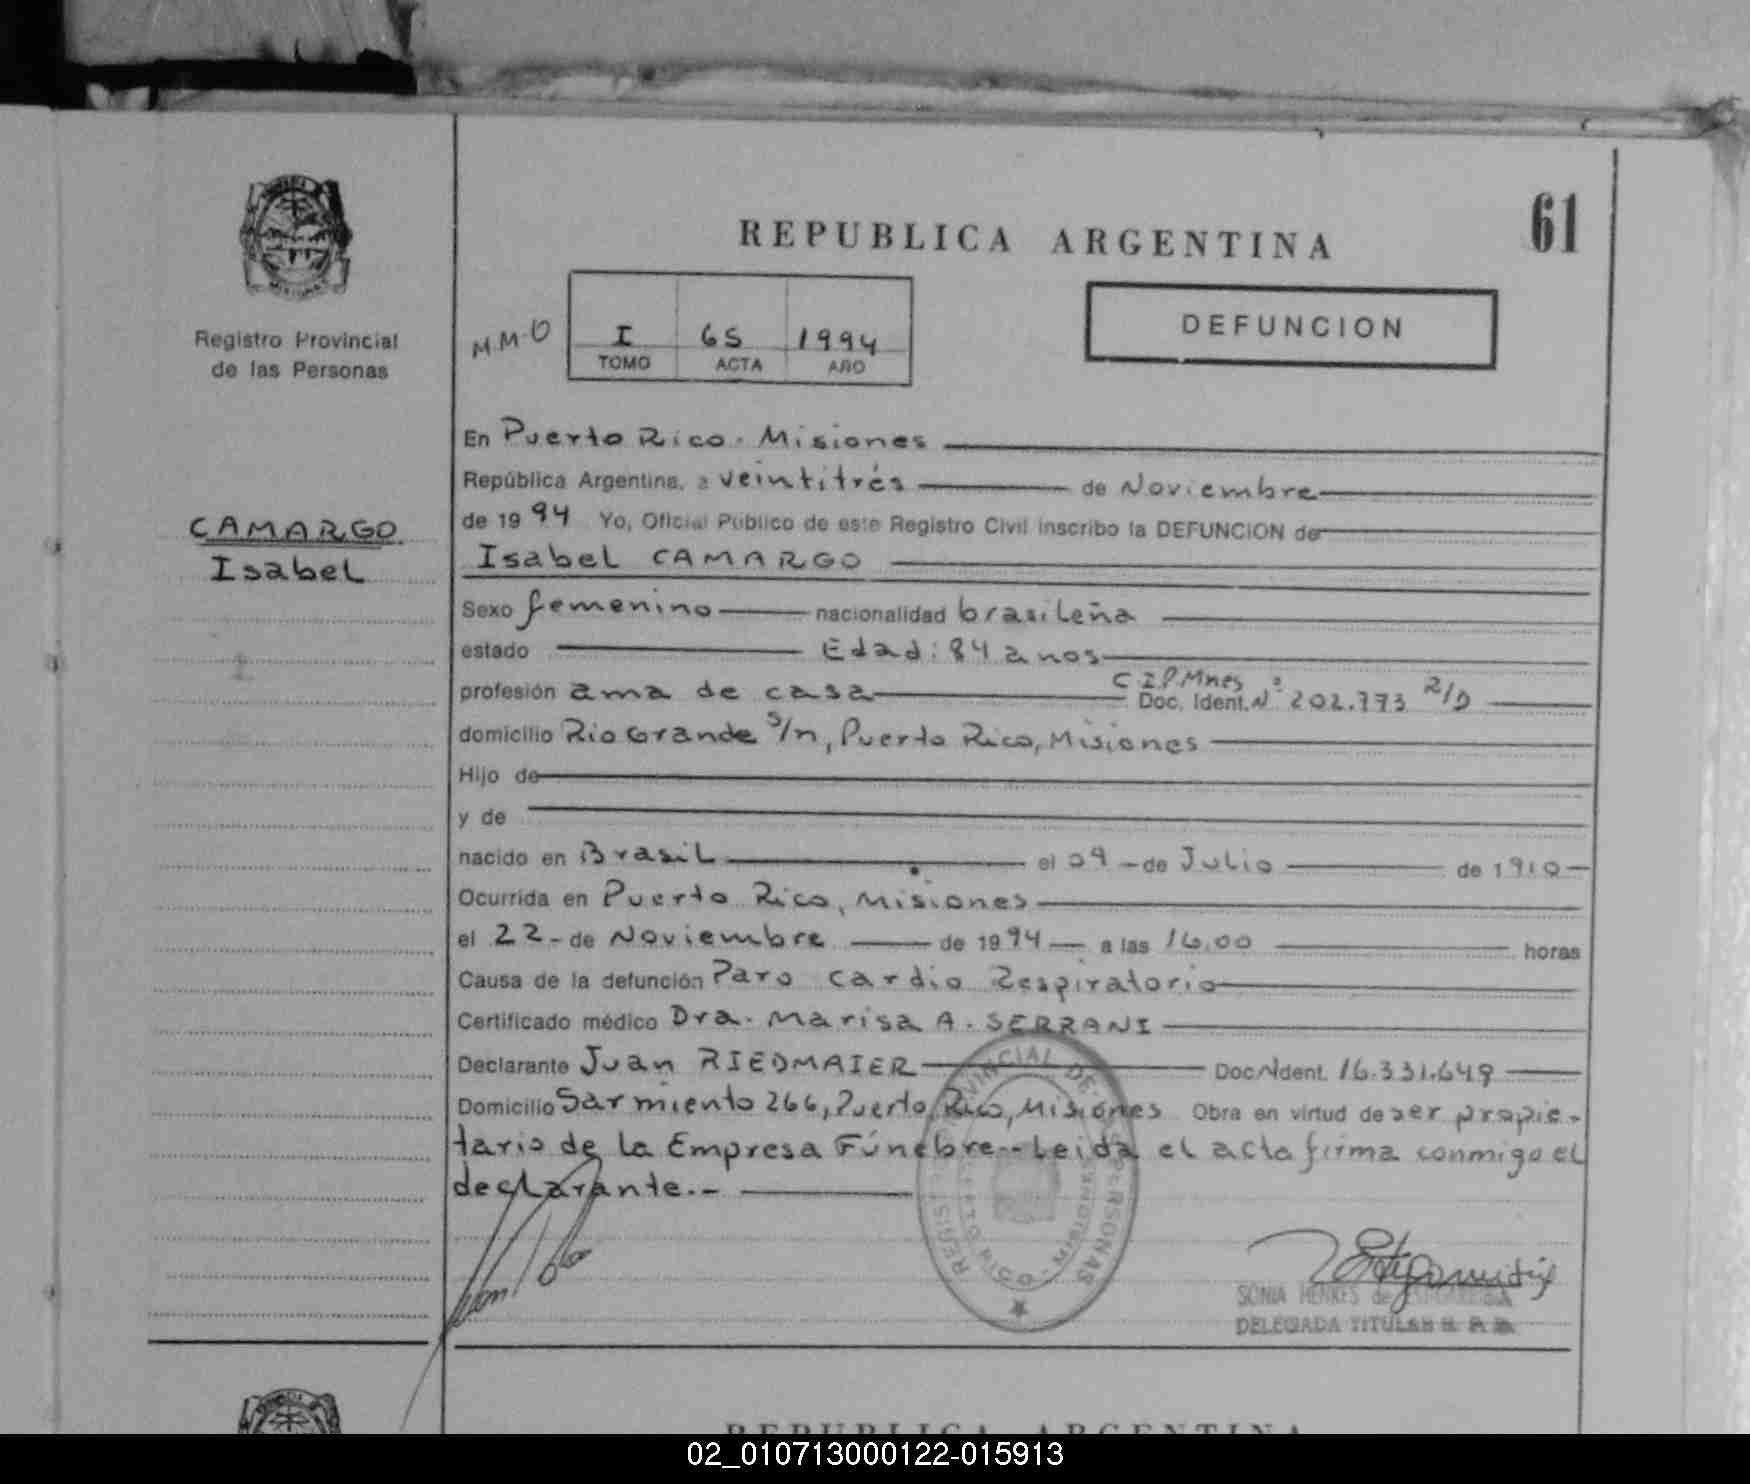 61
REPUBLICA ARGENTINA
DEFUNCION
Registro Provincial
de las Personas
M M-O
I 65 1994
TOMO ACTA AÑO
CAMARGO
Isabel
En Puerto Rico. Misiones
República Argentina, a veintitrés de Noviembre
de 19 94 Yo, Oficial Público de este Registro Civil inscribo la DEFUNCION de
Isabel CAMARGO
Sexo femenino nacionalidad brasileña
estado Edad: 84 anos
C.I.P. Mnes
profesión ama de casa Doc. Ident. Nº 202.773 R/D
domicilio Rio Grande S/n, Puerto Rico, Misiones
Hijo de
y de
nacido en Brasil el 09 - de Julio de 1910
Ocurrida en Puerto Rico, Misiones
el 22 - de Noviembre de 1994 a las 16.00 horas
Causa de la defunción Paro Cardio Respiratorio
Certificado médico Dra. Marisa A. SERRANI
Declarante Juan RIEDMAIER Doc. Ident. 16.331.649
Domicilio Sarmiento 266, Puerto Rico, Misiones Obra en virtud de ser propie-
tario de la Empresa Fúnebre.- Leida el acta firma conmigo el
declarante.-
REGISTRO PROVINCIAL DE LAS PERSONAS
PUERTO RICO - MISIONES
SONIA HENKES de
DELEGADA TITULAR R. P. P.
REPUBLICA ARGENTINA
02_010713000122-015913